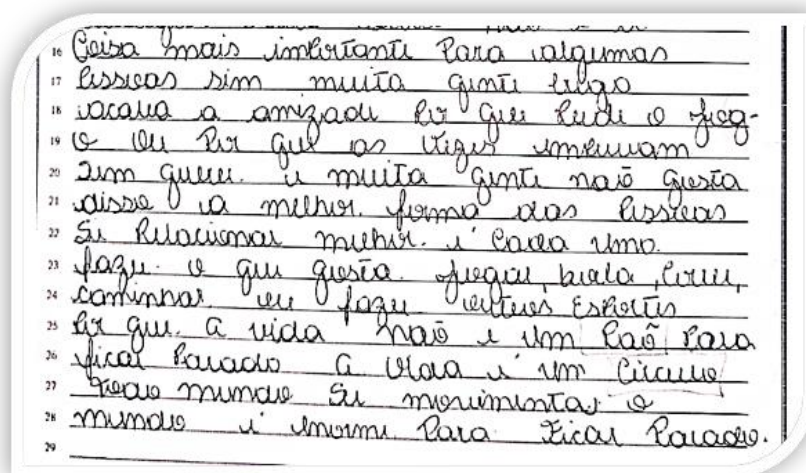 16 Coisa mais importante Para algumas
17 Pessoas sim muita gente briga
18 acaba a amizade Por que Perde o jog-
19 o ou Por que as vezes empurram
20 Sem querer. e muita gente naõ gosta
21 disso a melhor. forma das Pessoas
22 Se Relacionar melhor. e' Cada umo.
23 fazer. o que gosta. Jogar, bola, Correr,
24 caminhar. ou fazer outros Esportes
25 Por que. a vida naõ e um Paõ Para
26 ficar Parado a vida e' um Circulo,
27 Todo mundo Se movimentar o
28 mundo e' enorme. Para Ficar Parado.
29